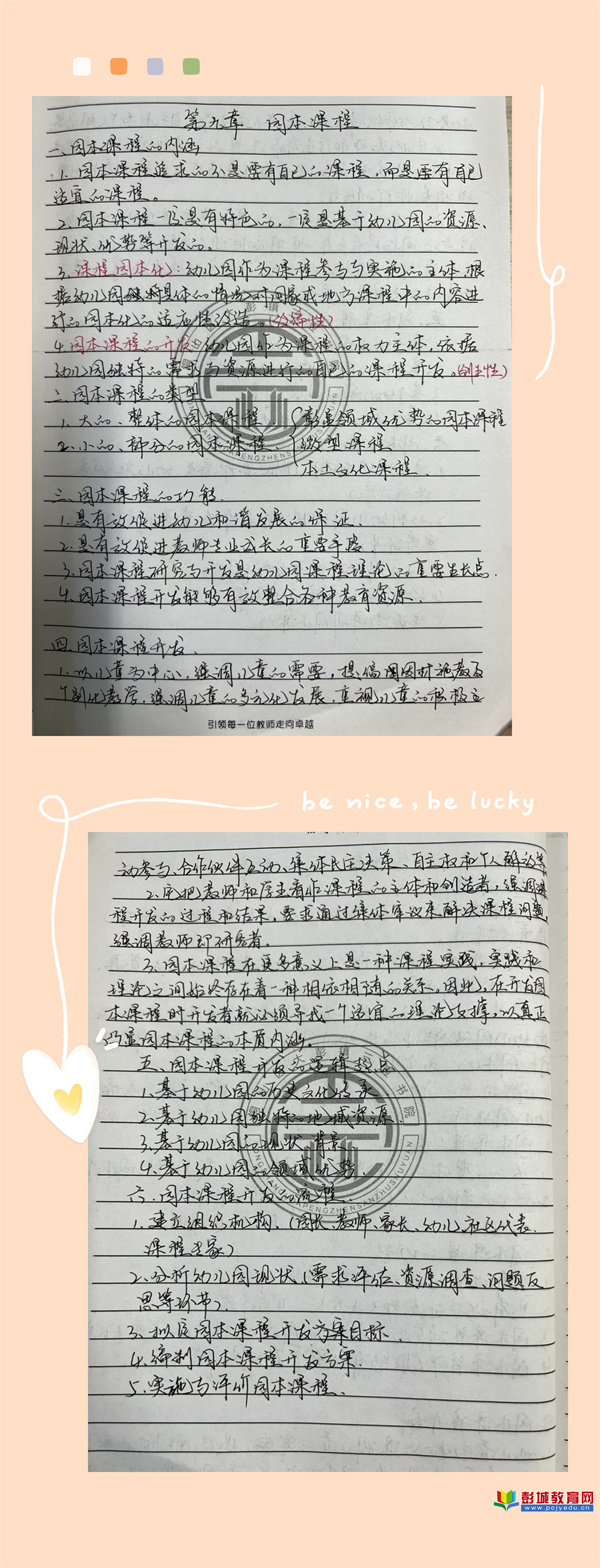 第九章 园本课程
一、园本课程的内涵
1.园本课程追求的不是要有自己的课程,而是要有自己
适宜的课程。
2.园本课程一定是有特色的,一定是基于幼儿园的资源、
现状、优势等开发的。
3.课程园本化:幼儿园作为课程参与与实施的主体,根
据幼儿园独特具体的情况对国家或地方课程中的内容进
行的园本化的适应性改造。
4.园本课程的开发:幼儿园作为课程的权力主体,依据
幼儿园独特的需求与资源进行的自己的课程开发。(创生性)
二、园本课程的类型
1.大的、整体的园本课程 彰显领域优势的园本课程
2.小的、部分的园本课程、微型课程
本土文化课程
三、园本课程的功能
1.是有效促进幼儿和谐发展的保证.
2.是有效促进教师专业成长的重要手段
3.园本课程研究与开发是幼儿园课程理论的重要生长点.
4.园本课程开发能够有效整合各种教育资源.
四、园本课程开发、
1.以儿童为中心,强调儿童的需要,提倡因材施教及
个别化教学,强调儿童的多元化发展,重视儿童的积极主
引领每一位教师走向卓越
be nice, be lucky
动参与、合作伙伴互动、集体民主决策、自主权和个人解放等
2.它把教师和学生看作课程的主体和创造者,强调课
程开发的过程和结果,要求通过集体审议来解决课程问题
强调教师即研究者。
3.园本课程在更多意义上是一种课程实践,实践和
理论之间始终存在着一种相依相随的关系,因此,在开发园
本课程时开发者就必须寻找一个适宜的理论支撑,以真正
凸显园本课程的本质内涵。
五、园本课程开发的逻辑起点
1.基于幼儿园的历史文化传承
2.基于幼儿园独特的地域资源
3.基于幼儿园的现状、背景
4.基于幼儿园的领域优势.
六、园本课程开发的流程.
1.建立组织机构.(园长、教师、家长、幼儿、社区代表、
课程专家)
2.分析幼儿园现状(需求评估、资源调查、问题反
思等环节).
3.拟定园本课程开发方案目标.
4.编制园本课程开发方案.
5.实施与评价园本课程.
彭城教育网
www.pcjyedu.cn